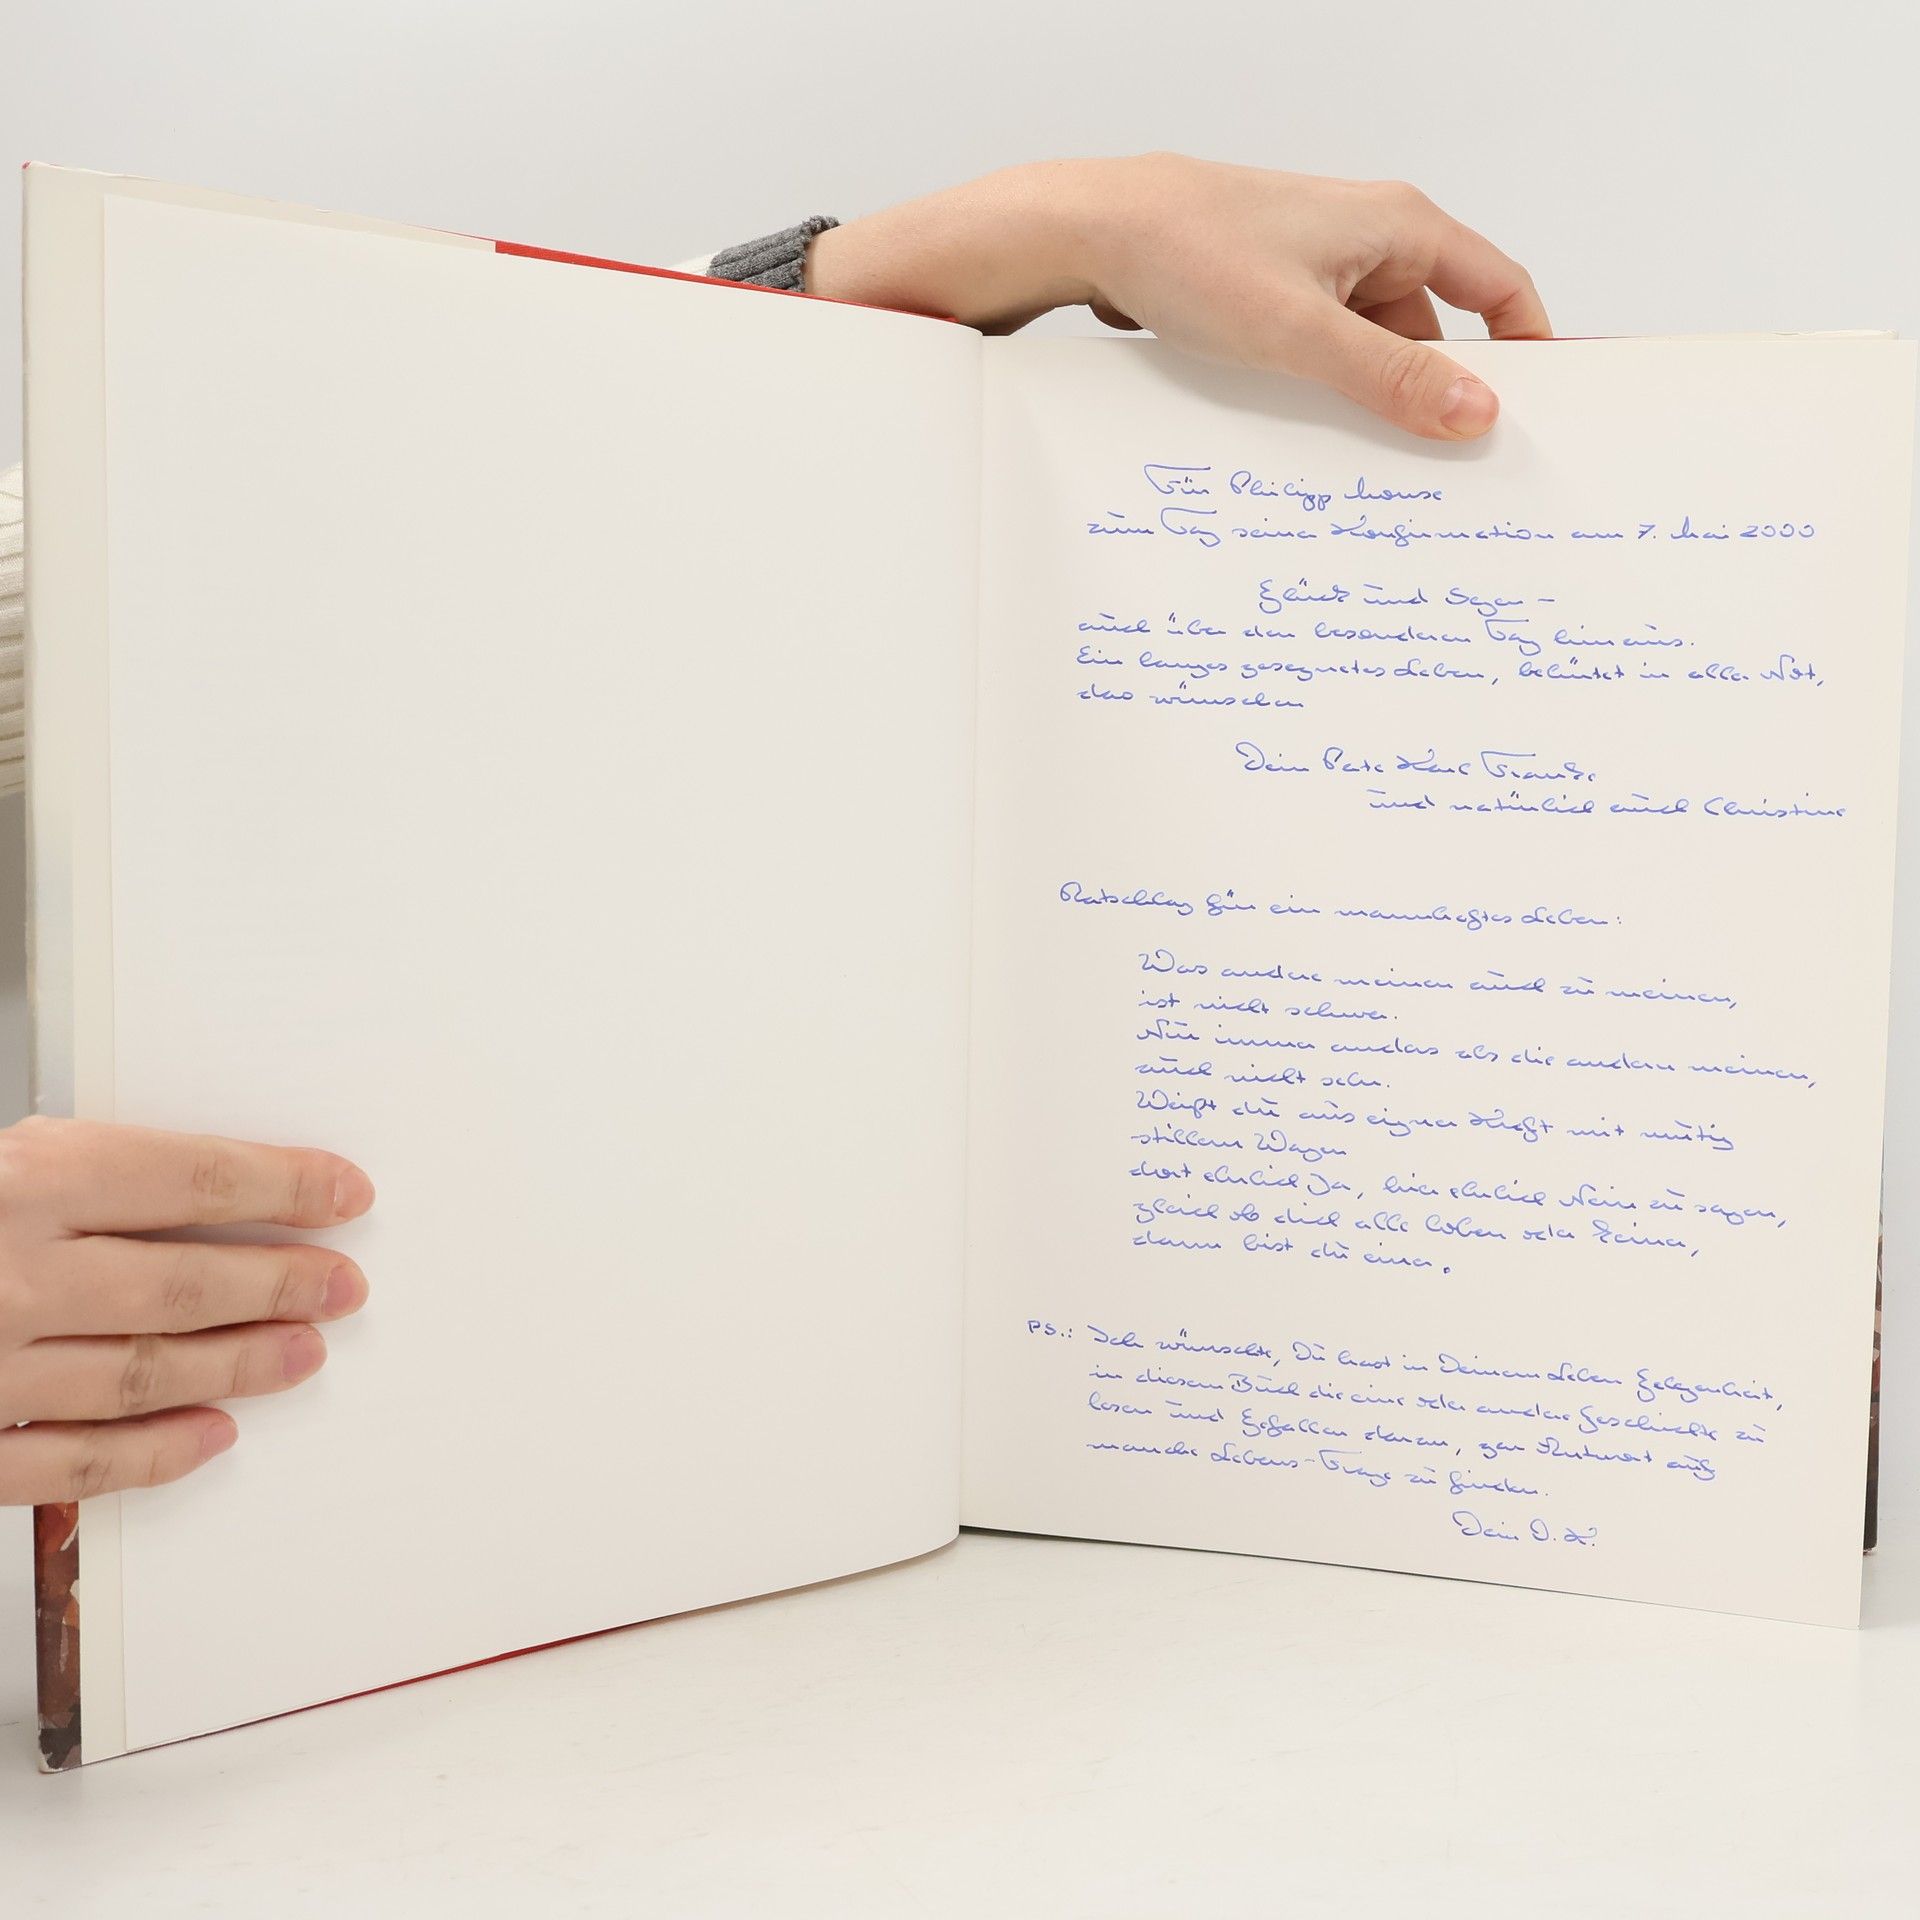 Für Philipp
zum Tag seiner Konfirmation am 7. Mai 2000
Glück und Segen –
auch über den besonderen Tag hinaus.
Ein langes gesegnetes Leben, behütet in aller Not,
das wünschen
Dein Pate Karl Franke
und natürlich auch Christine
Ratschlag für ein mannhaftes Leben:
Was andere meinen auch zu meinen,
ist nicht schwer.
Nur immer anders als die andern meinen,
auch nicht sehr.
Weißt du aus eigner Kraft mit mutig
stillem Wagen
dort ehrlich Ja, hier ehrlich Nein zu sagen,
gleich ob dich alle loben oder keiner,
dann bist du einer.
PS.: Ich wünschte, Du hast in Deinem Leben Gelegenheit,
in diesem Buch die eine oder andere Geschichte zu
lesen und Gefallen daran, gar Antwort auf
manche Lebens-Frage zu finden.
Dein O. K.